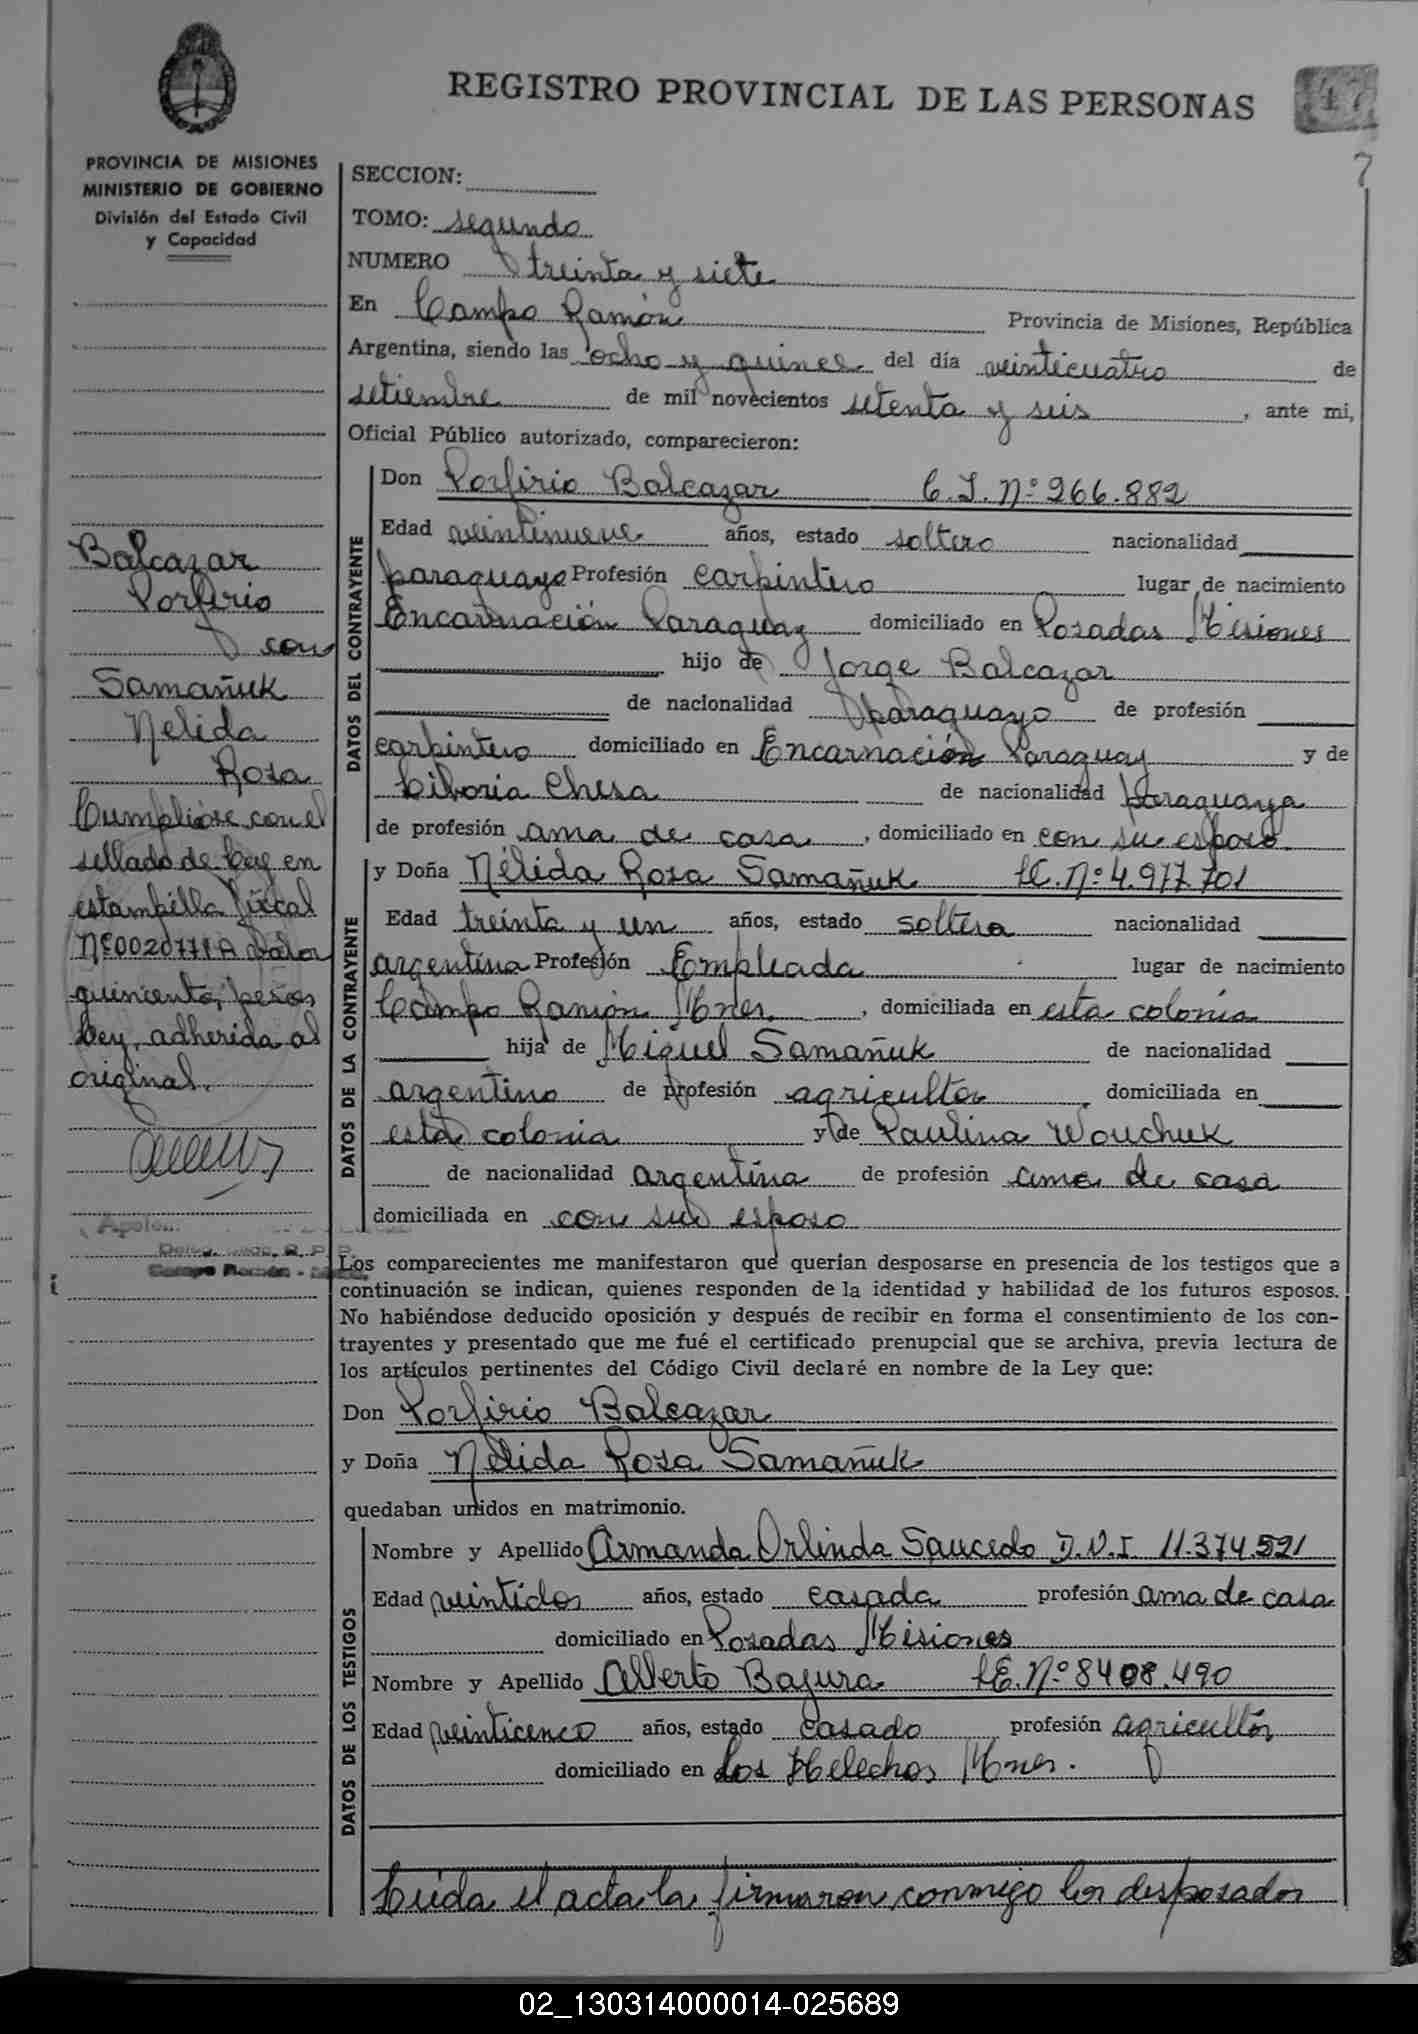 REGISTRO PROVINCIAL DE LAS PERSONAS
47
7
PROVINCIA DE MISIONES
MINISTERIO DE GOBIERNO
División del Estado Civil
y Capacidad
Balcazar
Porfirio
con
Samañuk
Nelida
Rosa
Cumplióse con el
sellado de Ley en
estampilla fiscal
valor
quinientos pesos
Ley, adherida al
original.
Campo Ramón -
SECCION:
TOMO: segundo
NUMERO treinta y siete
En Campo Ramón Provincia de Misiones, República
Argentina, siendo las ocho y quince del día veinticuatro de
setiembre de mil novecientos setenta y seis, ante mi,
Oficial Público autorizado, comparecieron:
DATOS DEL CONTRAYENTE
Don Porfirio Balcazar C.I. Nº 266.882
Edad veintinueve años, estado soltero nacionalidad
paraguayo Profesión carpintero lugar de nacimiento
Encarnación Paraguay domiciliado en Posadas Misiones
hijo de Jorge Balcazar
de nacionalidad paraguayo de profesión
carpintero domiciliado en Encarnación Paraguay y de
Liboria Chesa de nacionalidad paraguaya
de profesión ama de casa, domiciliado en con su esposo.
DATOS DE LA CONTRAYENTE
y Doña Nélida Rosa Samañuk LC. Nº 4.977.701
Edad treinta y un años, estado soltera nacionalidad
argentina Profesión Empleada lugar de nacimiento
Campo Ramón Mnes., domiciliada en esta colonia
hija de Miguel Samañuk de nacionalidad
argentino de profesión agricultor, domiciliada en
esta colonia y de Paulina Wouchuk
de nacionalidad argentina de profesión ama de casa
domiciliada en con su esposo
Los comparecientes me manifestaron que querían desposarse en presencia de los testigos que a
continuación se indican, quienes responden de la identidad y habilidad de los futuros esposos.
No habiéndose deducido oposición y después de recibir en forma el consentimiento de los con-
trayentes y presentado que me fué el certificado prenupcial que se archiva, previa lectura de
los artículos pertinentes del Código Civil declaré en nombre de la Ley que:
Don Porfirio Balcazar
y Doña Nélida Rosa Samañuk
quedaban unidos en matrimonio.
DATOS DE LOS TESTIGOS
Nombre y Apellido Armanda Orlinda Saucedo D.N.I 11.374.521
Edad veintidos años, estado casada profesión ama de casa
domiciliado en Posadas Misiones
Nombre y Apellido Alberto Bajura LE. Nº 8408.490
Edad veinticinco años, estado casado profesión agricultor
domiciliado en Los Helechos Mnes.
Leida el acta la firmaron conmigo los desposados
02_130314000014-025689